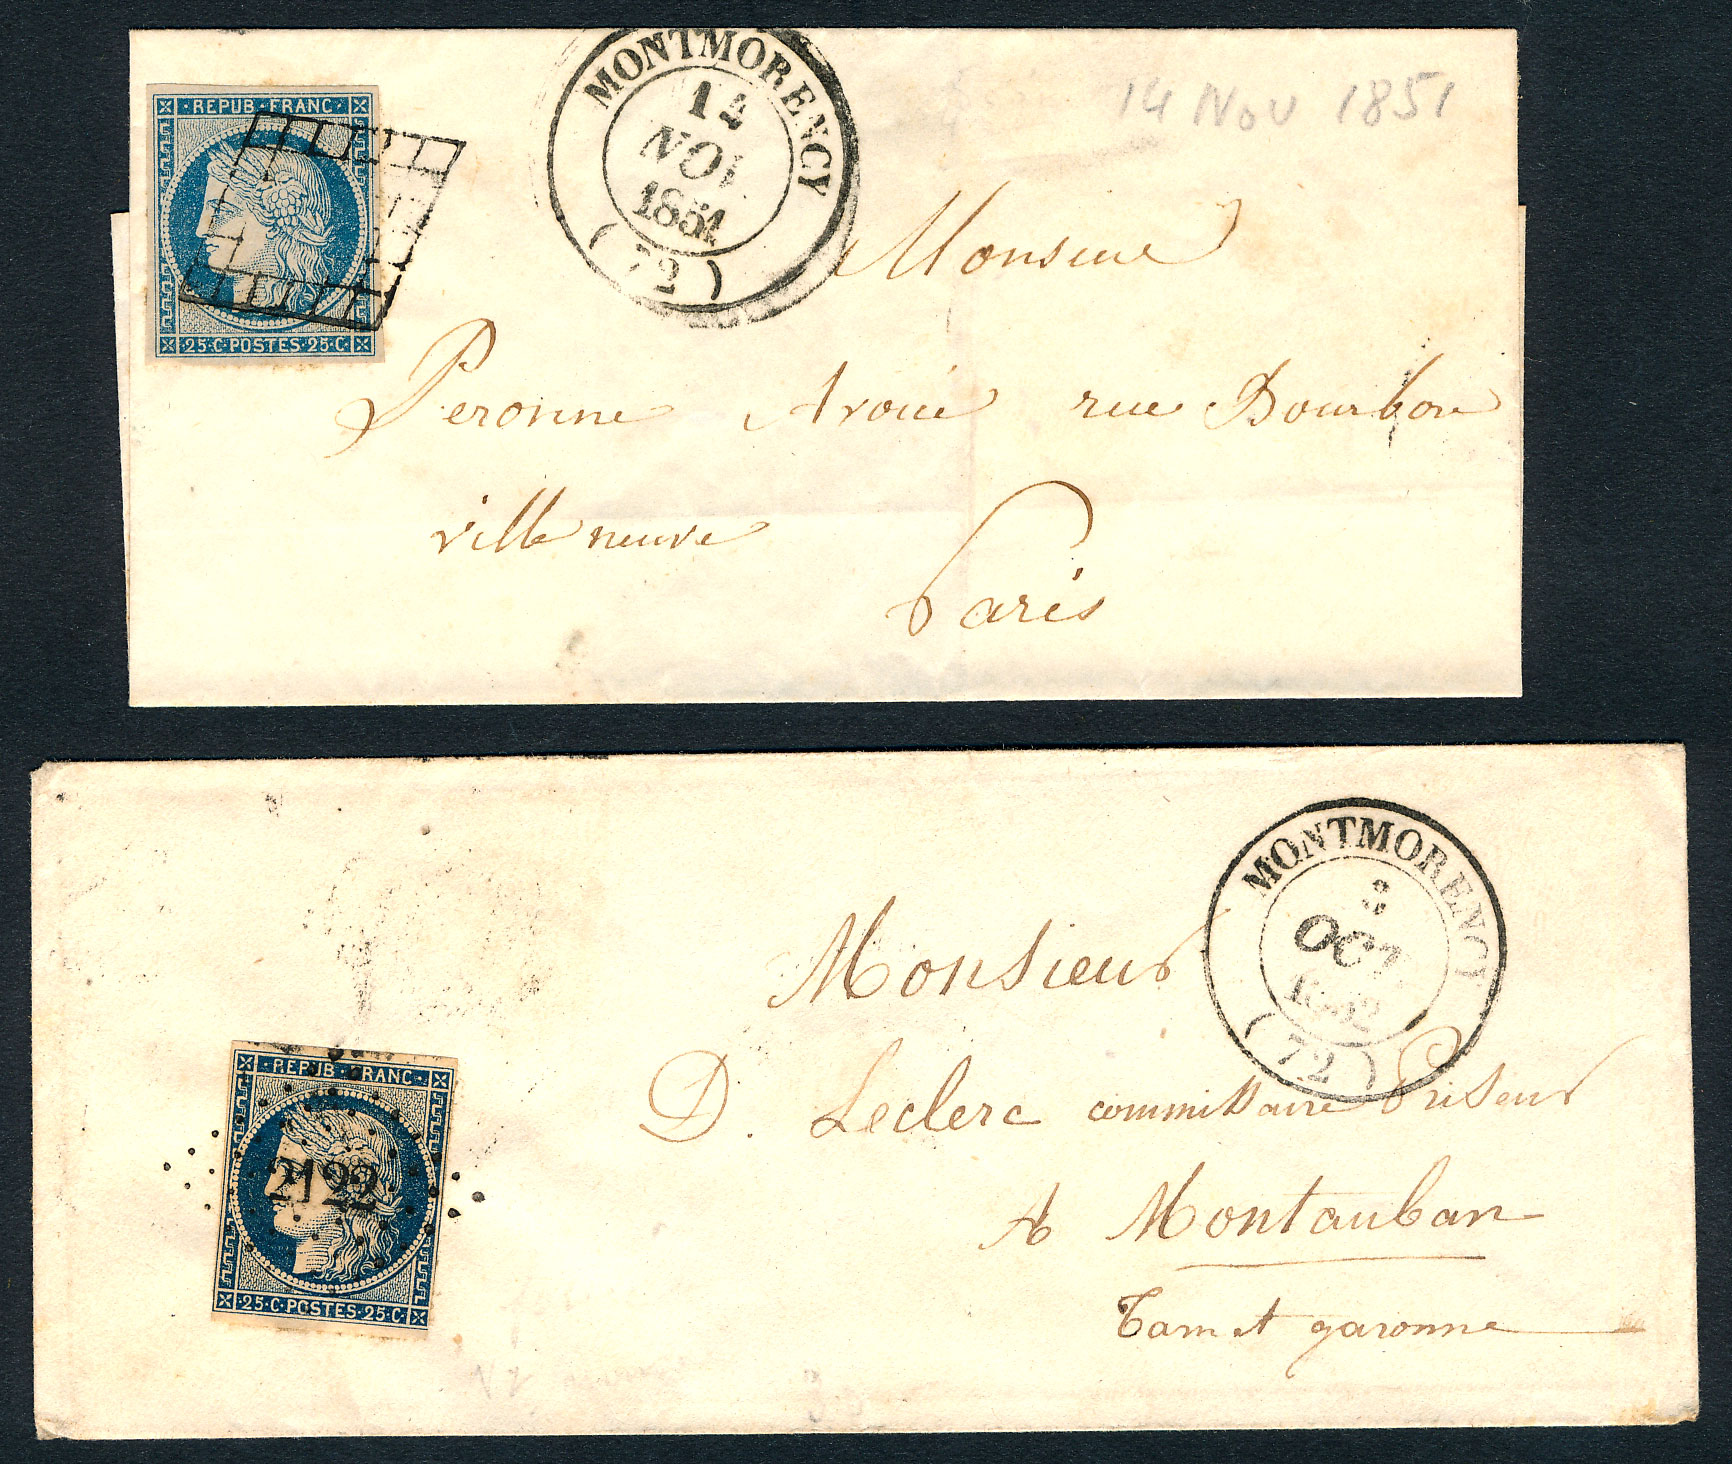 REPUB·FRANC·
25·C·POSTES·25·C·
MONTMORENCY
14
NOV
1851
(72)
14 Nov 1851
Monsieur
Peronne Avoué rue Bourbon
villeneuve
Paris
MONTMORENCY
OCT
1852
(72)
Monsieur
D. Leclerc commissaire Priseur
A Montauban
Tarn et garonne
·REPUB·FRANC·
2122
·25·C·POSTES·25·C·